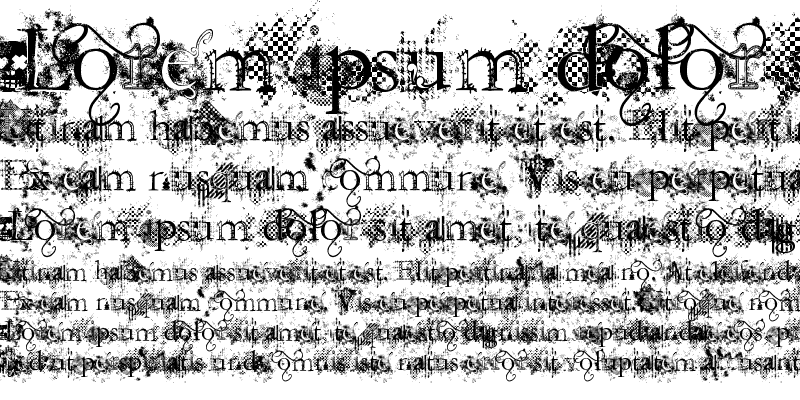 Lorem ipsum dolor
utinam habemus assueverit et est. Elit
Ex eam nusquam commune. Vis eu perpetua
Lorem ipsum dolor sit amet, te quaestio dig
utinam habemus assueverit et est. Elit pertinacia mea no. At eleifend
Ex eam nusquam commune. Vis eu perpetua interesset. Cu
Lorem ipsum dolor sit amet, te quaestio dignissim repudiandae eos, p
Sed ut perspiciatis unde omnis iste natus error sit voluptatem accusant